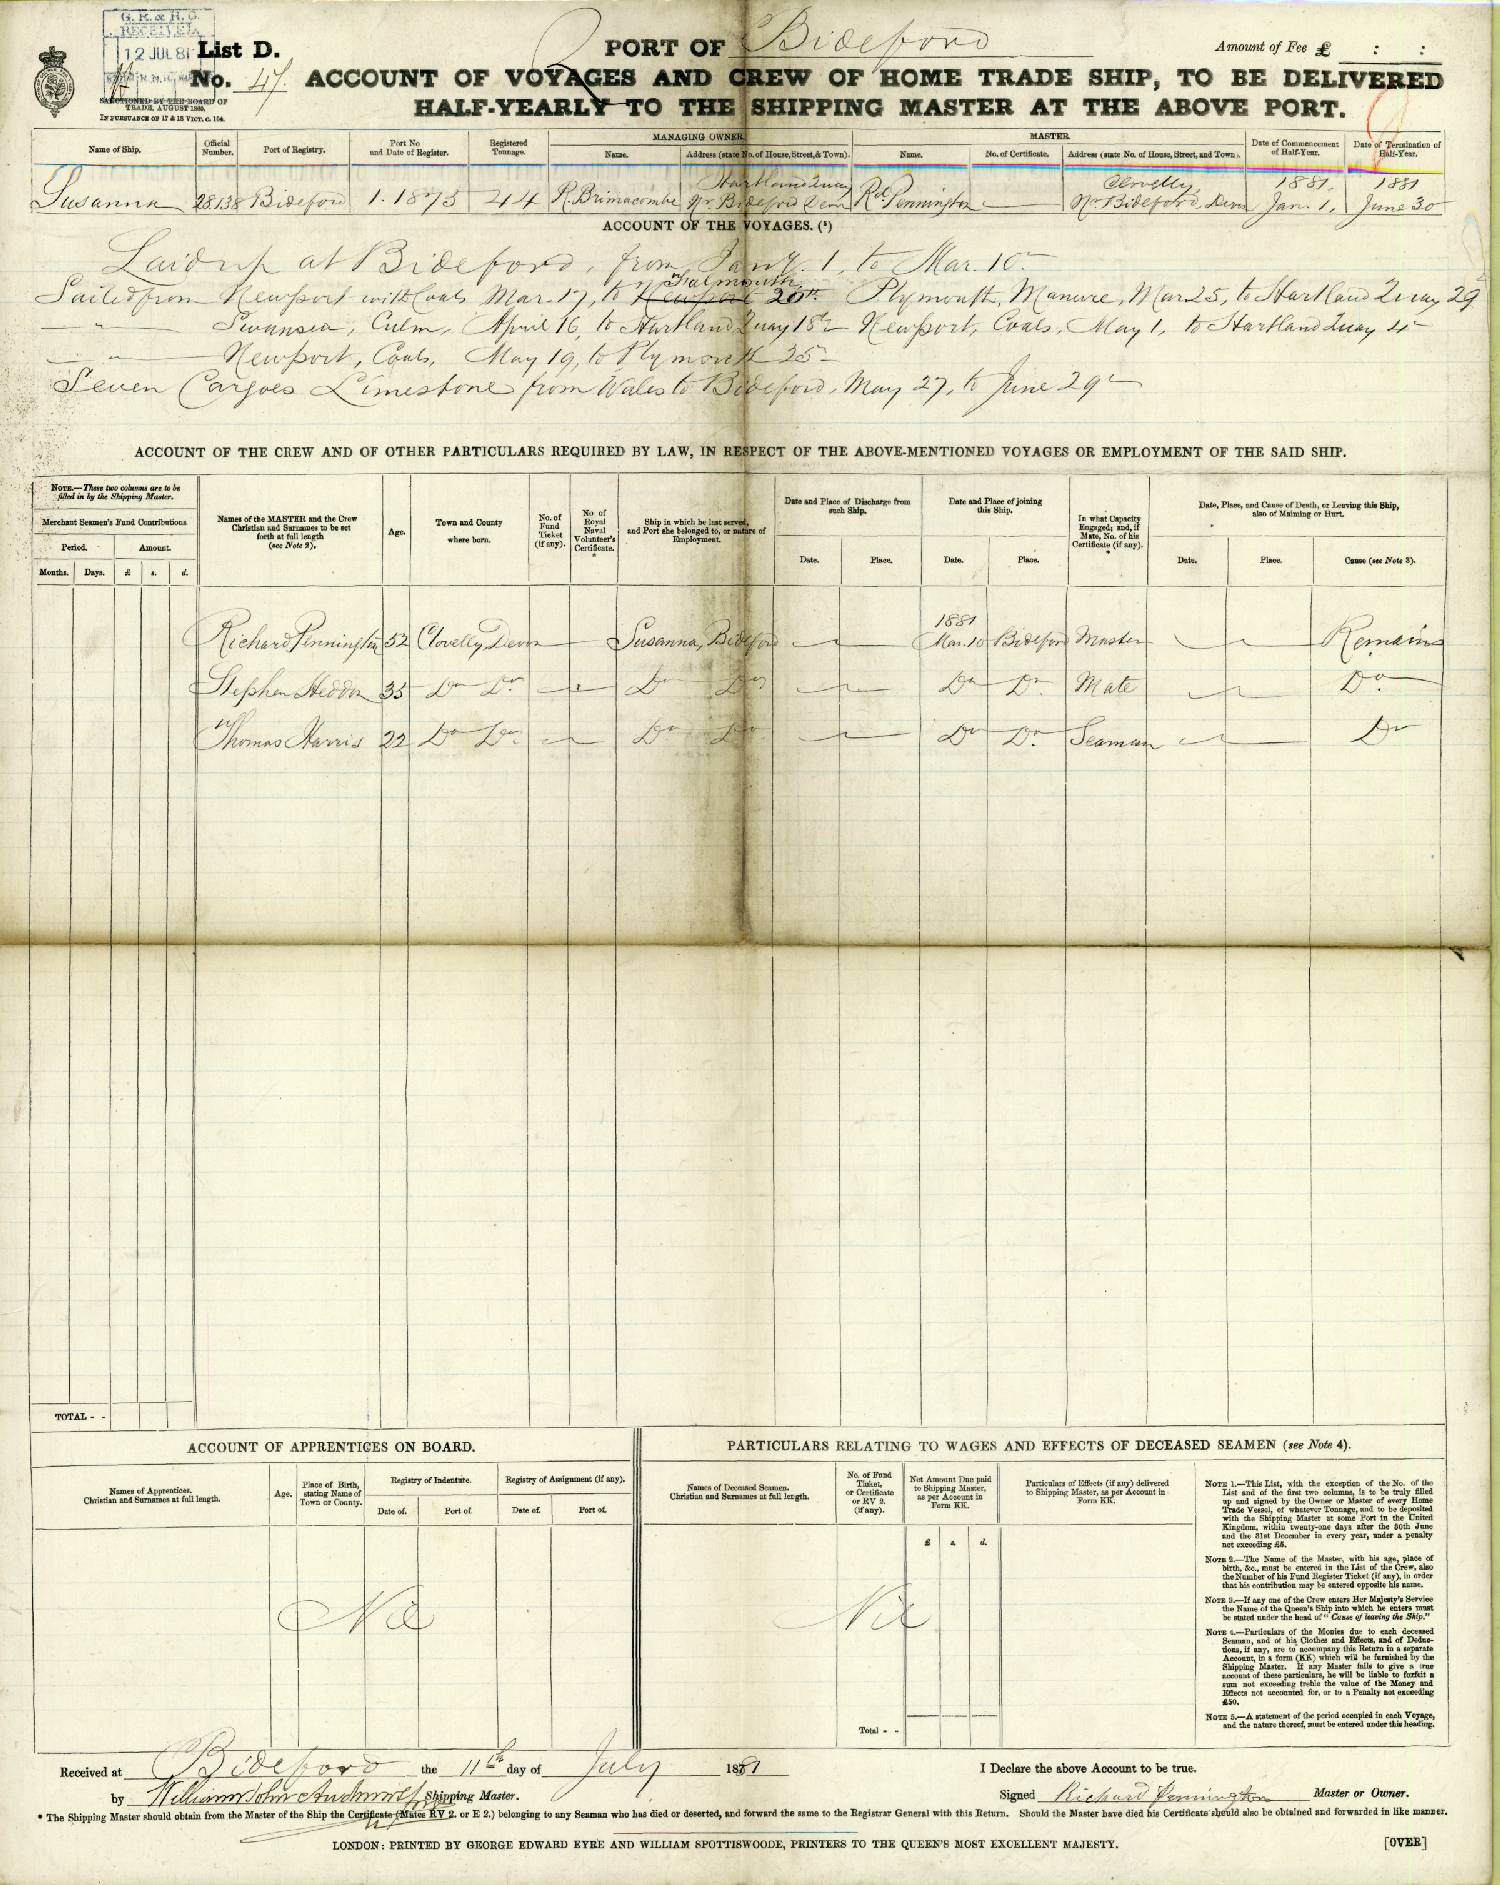 G. R. & R. G.
RECEIVED
12 JUL 81
List D.
No. 47.
SANCTIONED BY THE BOARD OF
TRADE, AUGUST
IN PURSUANCE OF 17 & 18 VICT. C. 104.
PORT OF Bideford
Amount of Fee £ : :
ACCOUNT OF VOYAGES AND CREW OF HOME TRADE SHIP, TO BE DELIVERED
HALF-YEARLY TO THE SHIPPING MASTER AT THE ABOVE PORT.
Name of Ship. Official Number. Port of Registry. Port No and Date of Register. Registered Tonnage. MANAGING OWNER. Name. Address (state No. of House, Street, & Town). MASTER. Name. No. of Certificate. Address (state No. of House, Street, and Town). Date of Commencement of Half-Year. Date of Termination of Half-Year.
Susanna 28138 Bideford 1. 1875 44 R. Brimacombe Hartland Quay Nr. Bideford Devon Rd. Pennington Clovelly, Nr. Bideford, Devon 1881. Jan. 1. 1881 June 30
ACCOUNT OF THE VOYAGES. (1)
Laid up at Bideford, from Jany. 1, to Mar. 10
Sailed from Newport with Coals Mar. 17, to Newport Falmouth 20th. Plymouth, Manure, Mar. 25, to Hartland Quay 29
— " — Swansea, Culm, April 16, to Hartland Quay 18th Newport, Coals, May 1, to Hartland Quay 4
— " — Newport, Coals, May 19, to Plymouth 25
Seven Cargoes Limestone from Wales to Bideford, May 27, to June 29
ACCOUNT OF THE CREW AND OF OTHER PARTICULARS REQUIRED BY LAW, IN RESPECT OF THE ABOVE-MENTIONED VOYAGES OR EMPLOYMENT OF THE SAID SHIP.
NOTE.—These two columns are to be filled in by the Shipping Master.
Merchant Seamen's Fund Contributions
Period. Amount.
Months. Days. £ s. d.
Names of the MASTER and the Crew Christian and Surnames to be set forth at full length (see Note 2).
Age.
Town and County where born.
No. of Fund Ticket (if any).
No of Royal Naval Volunteer's Certificate. *
Ship in which he last served, and Port she belonged to, or nature of Employment.
Date and Place of Discharge from such Ship.
Date. Place.
Date and Place of joining this Ship.
Date. Place.
In what Capacity Engaged; and, if Mate, No. of his Certificate (if any). *
Date, Place, and Cause of Death, or Leaving this Ship, also of Maiming or Hurt.
Date. Place. Cause (see Note 3).
Richard Pennington 52 Clovelly Devon Susanna, Bideford 1881 Mar. 10 Bideford Master Remains
Stephen Heddon 35 Do Do Do Do Do Do. Mate Do
Thomas Harris 22 Do Do Do Do Do Do. Seaman Do
TOTAL - -
ACCOUNT OF APPRENTICES ON BOARD.
Names of Apprentices. Christian and Surnames at full length.
Age.
Place of Birth, stating Name of Town or County.
Registry of Indenture.
Date of. Port of.
Registry of Assignment (if any).
Date of. Port of.
Nil
PARTICULARS RELATING TO WAGES AND EFFECTS OF DECEASED SEAMEN (see Note 4).
Names of Deceased Seamen. Christian and Surnames at full length.
No. of Fund Ticket, or Certificate or RV 2. (if any).
Net Amount Due paid to Shipping Master, as per Account in Form KK.
£ s. d.
Particulars of Effects (if any) delivered to Shipping Master, as per Account in Form KK.
Nil
Total - -
NOTE 1.—This List, with the exception of the No. of the
List and of the first two columns, is to be truly filled
up and signed by the Owner or Master of every Home
Trade Vessel, of whatever Tonnage, and to be deposited
with the Shipping Master at some Port in the United
Kingdom, within twenty-one days after the 30th June
and the 31st December in every year, under a penalty
not exceeding £5.
NOTE 2.—The Name of the Master, with his age, place of
birth, &c., must be entered in the List of the Crew, also
the Number of his Fund Register Ticket (if any), in order
that his contribution may be entered opposite his name.
NOTE 3.—If any one of the Crew enters Her Majesty's Service
the Name of the Queen's Ship into which he enters must
be stated under the head of "Cause of leaving the Ship."
NOTE 4.—Particulars of the Monies due to each deceased
Seaman, and of his Clothes and Effects, and of Deduc-
tions, if any, are to accompany this Return in a separate
Account, in a form (KK) which will be furnished by the
Shipping Master. If any Master fails to give a true
account of these particulars, he will be liable to forfeit a
sum not exceeding treble the value of the Money and
Effects not accounted for, or to a Penalty not exceeding
£50.
NOTE 5.—A statement of the period occupied in each Voyage,
and the nature thereof, must be entered under this heading.
Received at Bideford the 11th day of July 1881
by William John Shipping Master.
I Declare the above Account to be true.
Signed Richard Pennington Master or Owner.
* The Shipping Master should obtain from the Master of the Ship the Certificate (Mates RV 2. or E 2.) belonging to any Seaman who has died or deserted, and forward the same to the Registrar General with this Return. Should the Master have died his Certificate should also be obtained and forwarded in like manner.
LONDON: PRINTED BY GEORGE EDWARD EYRE AND WILLIAM SPOTTISWOODE, PRINTERS TO THE QUEEN'S MOST EXCELLENT MAJESTY.
[OVER]